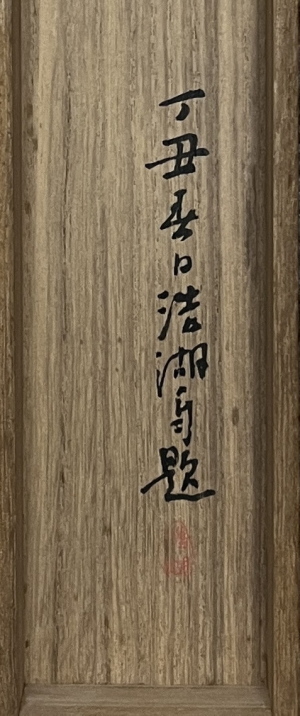 丁丑春日浩湖自題